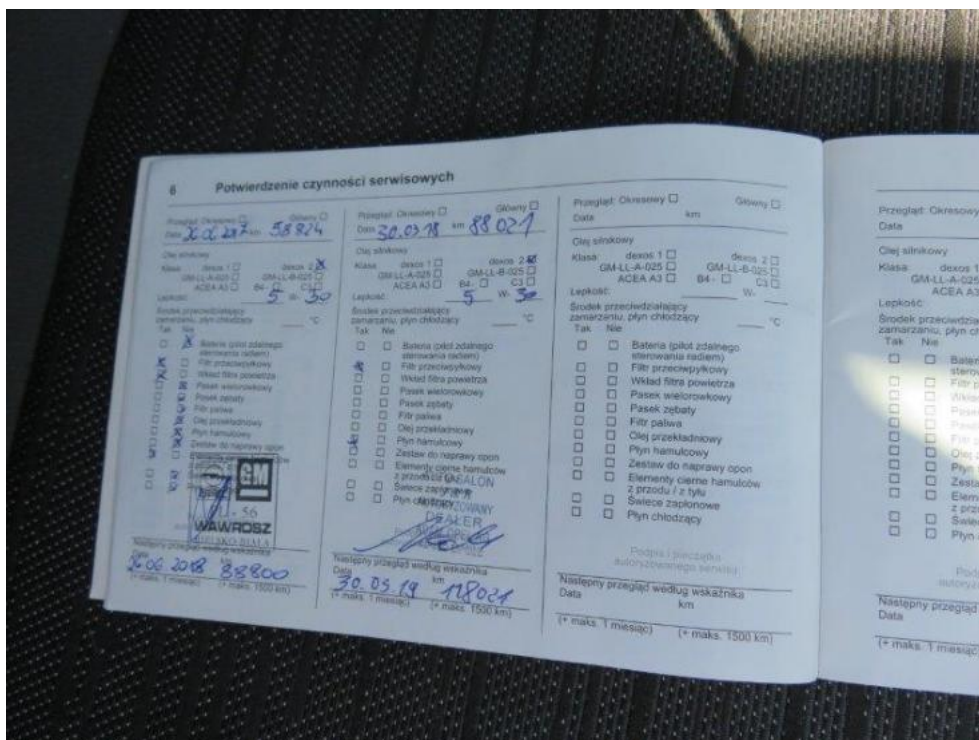 6 Potwierdzenie czynności serwisowych
Przegląd: Okresowy Główny
Data km 58824
Olej silnikowy
Klasa: dexos 1 dexos 2
GM-LL-A-025 GM-LL-B-025
ACEA A3 B4- C3
Lepkość: 5 W- 30
Środek przeciwdziałający
zamarzaniu, płyn chłodzący °C
Tak Nie
Bateria (pilot zdalnego
sterowania radiem)
Filtr przeciwpyłkowy
Wkład filtra powietrza
Pasek wielorowkowy
Pasek zębaty
Filtr paliwa
Olej przekładniowy
Płyn hamulcowy
Zestaw do naprawy opon
GM
- 56
WAWROSZ
BIELSKO-BIAŁA
Następny przegląd według wskaźnika
Data km
26.06.2018 88800
(+ maks. 1 miesiąc) (+ maks. 1500 km)
Przegląd: Okresowy Główny
Data 30.03.18 km 88021
Olej silnikowy
Klasa: dexos 1 dexos 2
GM-LL-A-025 GM-LL-B-025
ACEA A3 B4- C3
Lepkość: 5 W- 30
Środek przeciwdziałający
zamarzaniu, płyn chłodzący °C
Tak Nie
Bateria (pilot zdalnego
sterowania radiem)
Filtr przeciwpyłkowy
Wkład filtra powietrza
Pasek wielorowkowy
Pasek zębaty
Filtr paliwa
Olej przekładniowy
Płyn hamulcowy
Zestaw do naprawy opon
Elementy cierne hamulców
z przodu / z tyłu
SALON
Świece zapłonowe
Płyn chłodzący
DEALER
Następny przegląd według wskaźnika
Data km
30.03.19 118021
(+ maks. 1 miesiąc) (+ maks. 1500 km)
Przegląd: Okresowy Główny
Data km
Olej silnikowy
Klasa: dexos 1 dexos 2
GM-LL-A-025 GM-LL-B-025
ACEA A3 B4- C3
Lepkość: W-
Środek przeciwdziałający
zamarzaniu, płyn chłodzący °C
Tak Nie
Bateria (pilot zdalnego
sterowania radiem)
Filtr przeciwpyłkowy
Wkład filtra powietrza
Pasek wielorowkowy
Pasek zębaty
Filtr paliwa
Olej przekładniowy
Płyn hamulcowy
Zestaw do naprawy opon
Elementy cierne hamulców
z przodu / z tyłu
Świece zapłonowe
Płyn chłodzący
Podpis i pieczątka
autoryzowanego serwisu
Następny przegląd według wskaźnika
Data km
(+ maks. 1 miesiąc) (+ maks. 1500 km)
Przegląd: Okresowy
Data
Olej silnikowy
Klasa: dexos 1
GM-LL-A-025
ACEA A3
Lepkość:
Środek
zamarzaniu, płyn
Tak Nie
Płyn
Następny przegląd
Data
(+ maks. 1 miesiąc